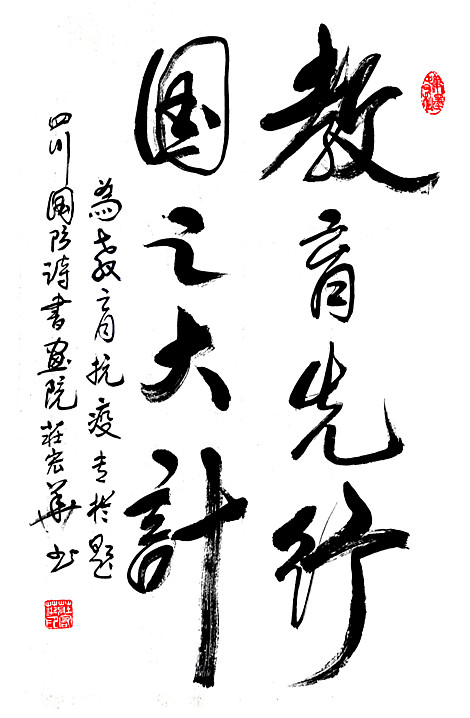 教育先行
国之大計
為教育抗疫专栏题
四川国防诗书画院莊宏華书